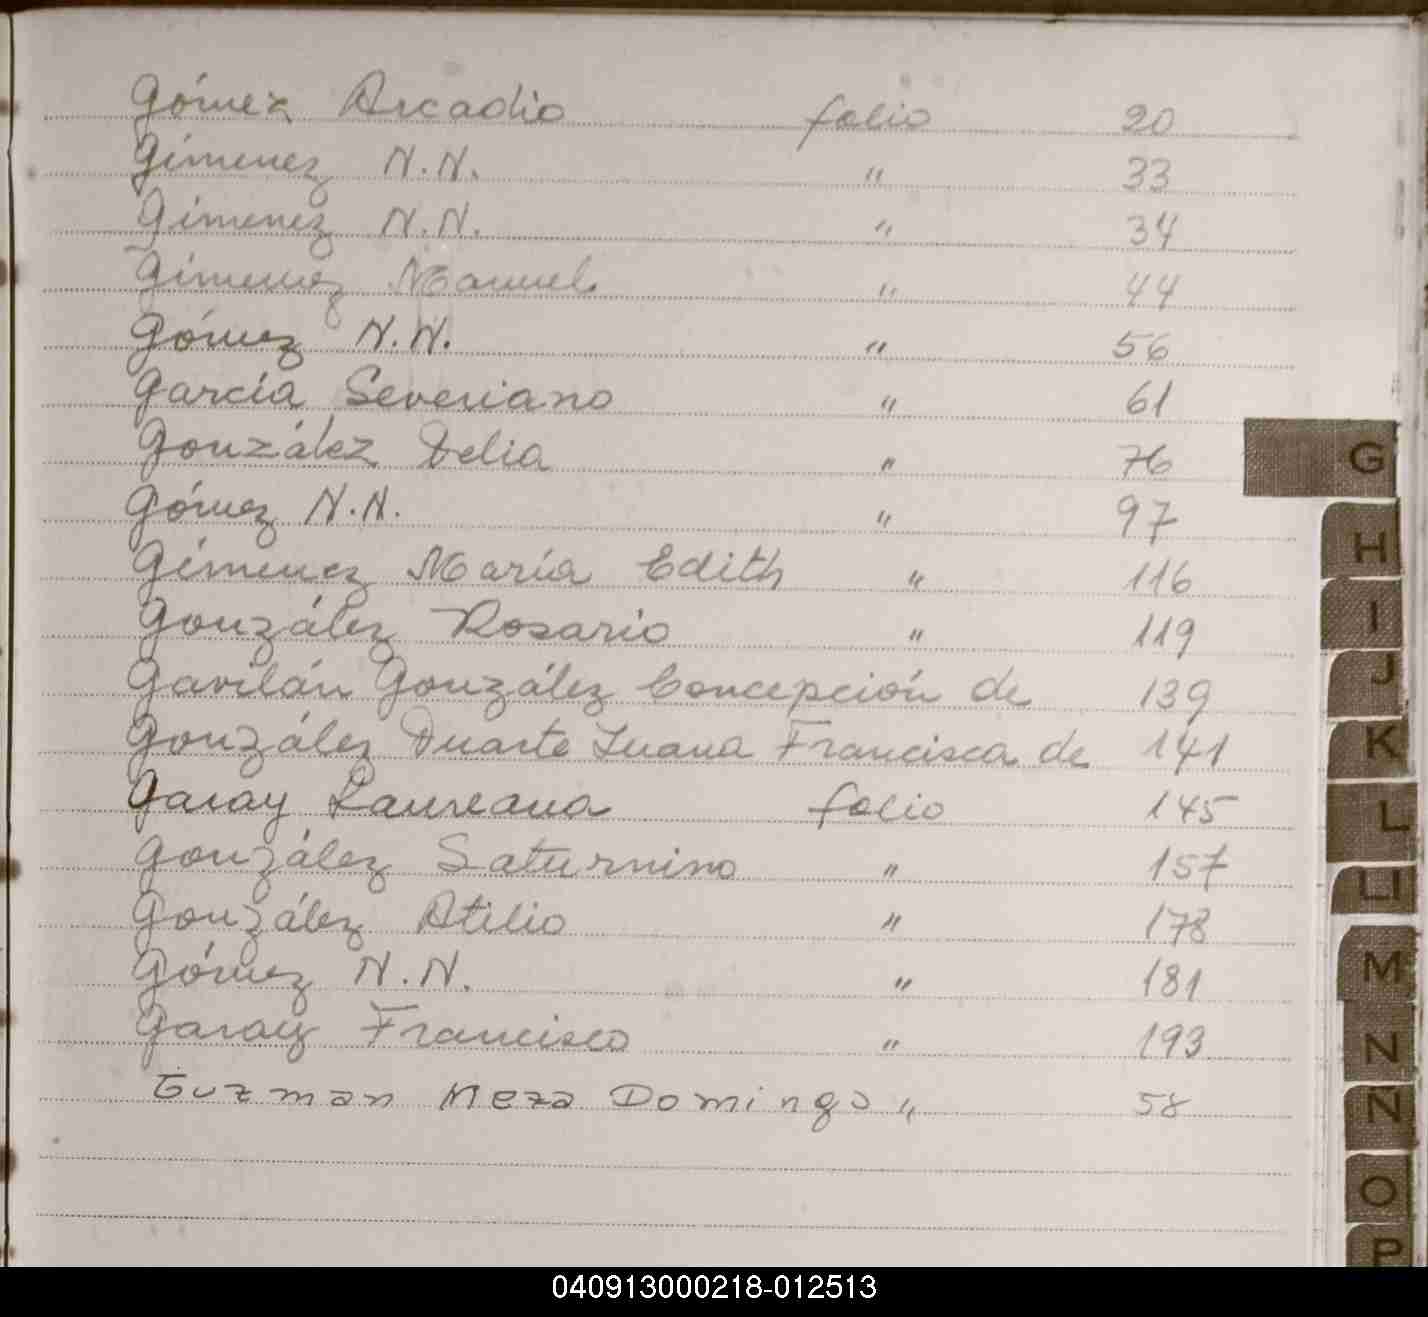 Gómez Arcadio folio 20
Gimenez N.N. " 33
Gimenez N.N. " 34
Gimenez Manuel " 44
Gómez N.N. " 56
García Severiano " 61
González Delia " 76
Gómez N.N. " 97
Gimenez María Edith " 116
González Rosario " 119
Gavilán González Concepción de 139
González Duarte Juana Francisca de 141
Garay Laureana folio 145
González Saturnino " 157
González Atilio " 178
Gómez N.N. " 181
Garay Francisco " 193
Guzman Meza Domingo " 58
G
H
I
J
K
L
Ll
M
N
Ñ
O
P
040913000218-012513